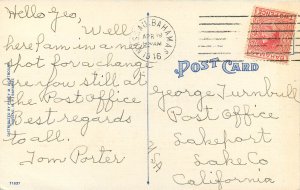 Hello Geo,
Well
here I am in a new
spot for a change
are you still at
the Post Office
Best regards
to all.
Tom Porter
11537
BAHAMAS
APR 19
1916
POST CARD
George Turnbull
Post Office
Lakeport
Lake Co
California